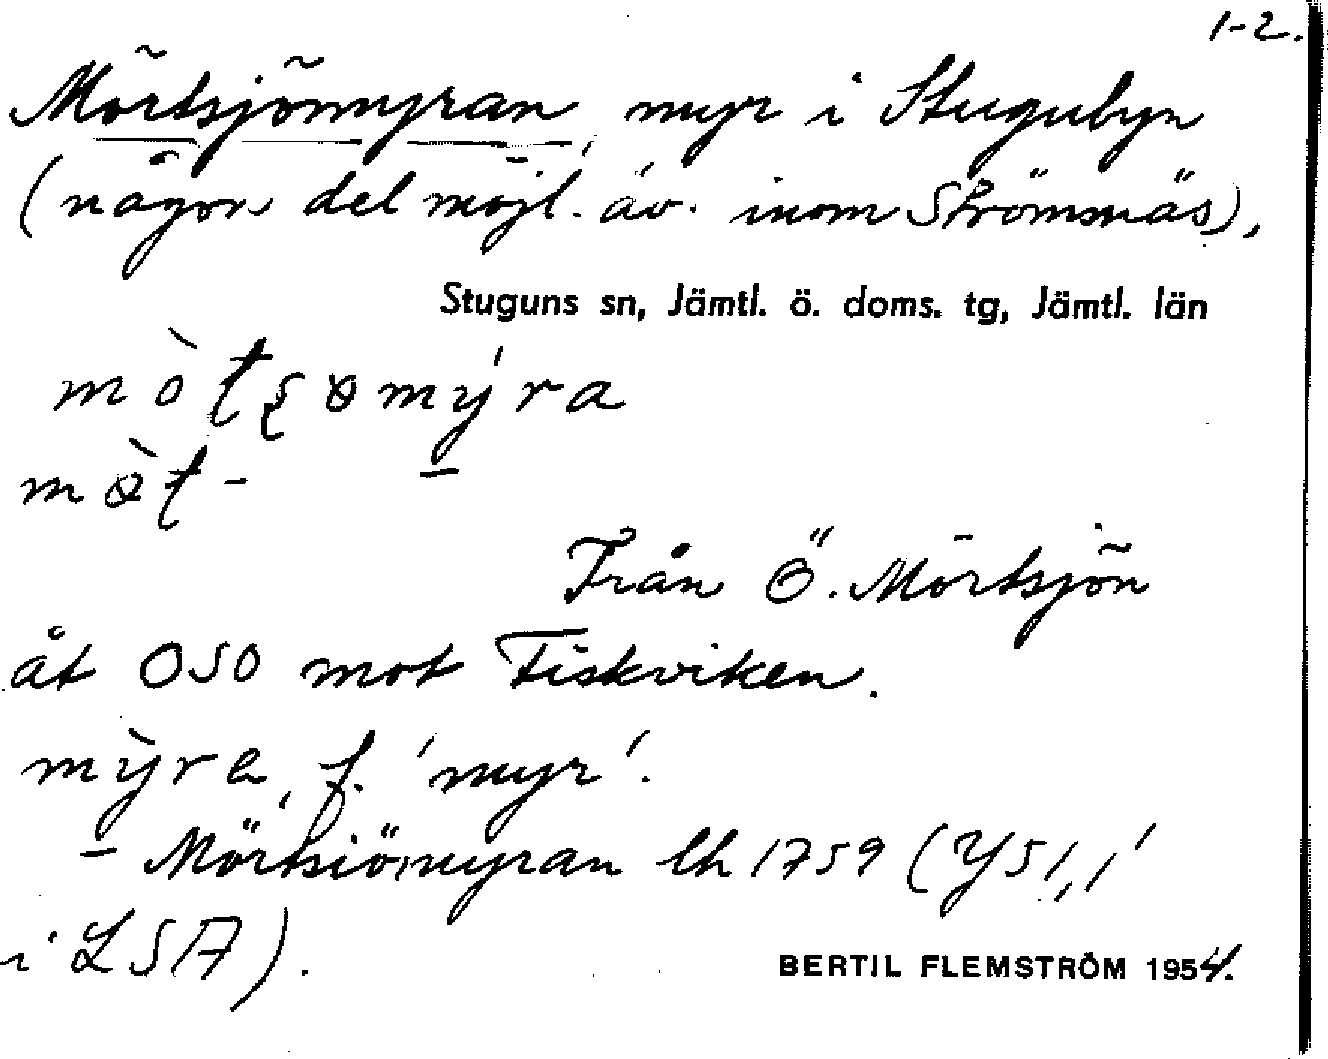 1-2.
Mörtsjömyran, myr i Stugubyn
(någon del möjl. äv. inom Strömsnäs),
Stuguns sn, Jämtl. ö. doms. tg, Jämtl. län
Från Ö. Mörtsjön
åt OSO mot Fiskviken.
mỳra, f. 'myr'.
– Mörtsiömyran lh 1759 (Y51,1
i LSA).
BERTIL FLEMSTRÖM 1954.